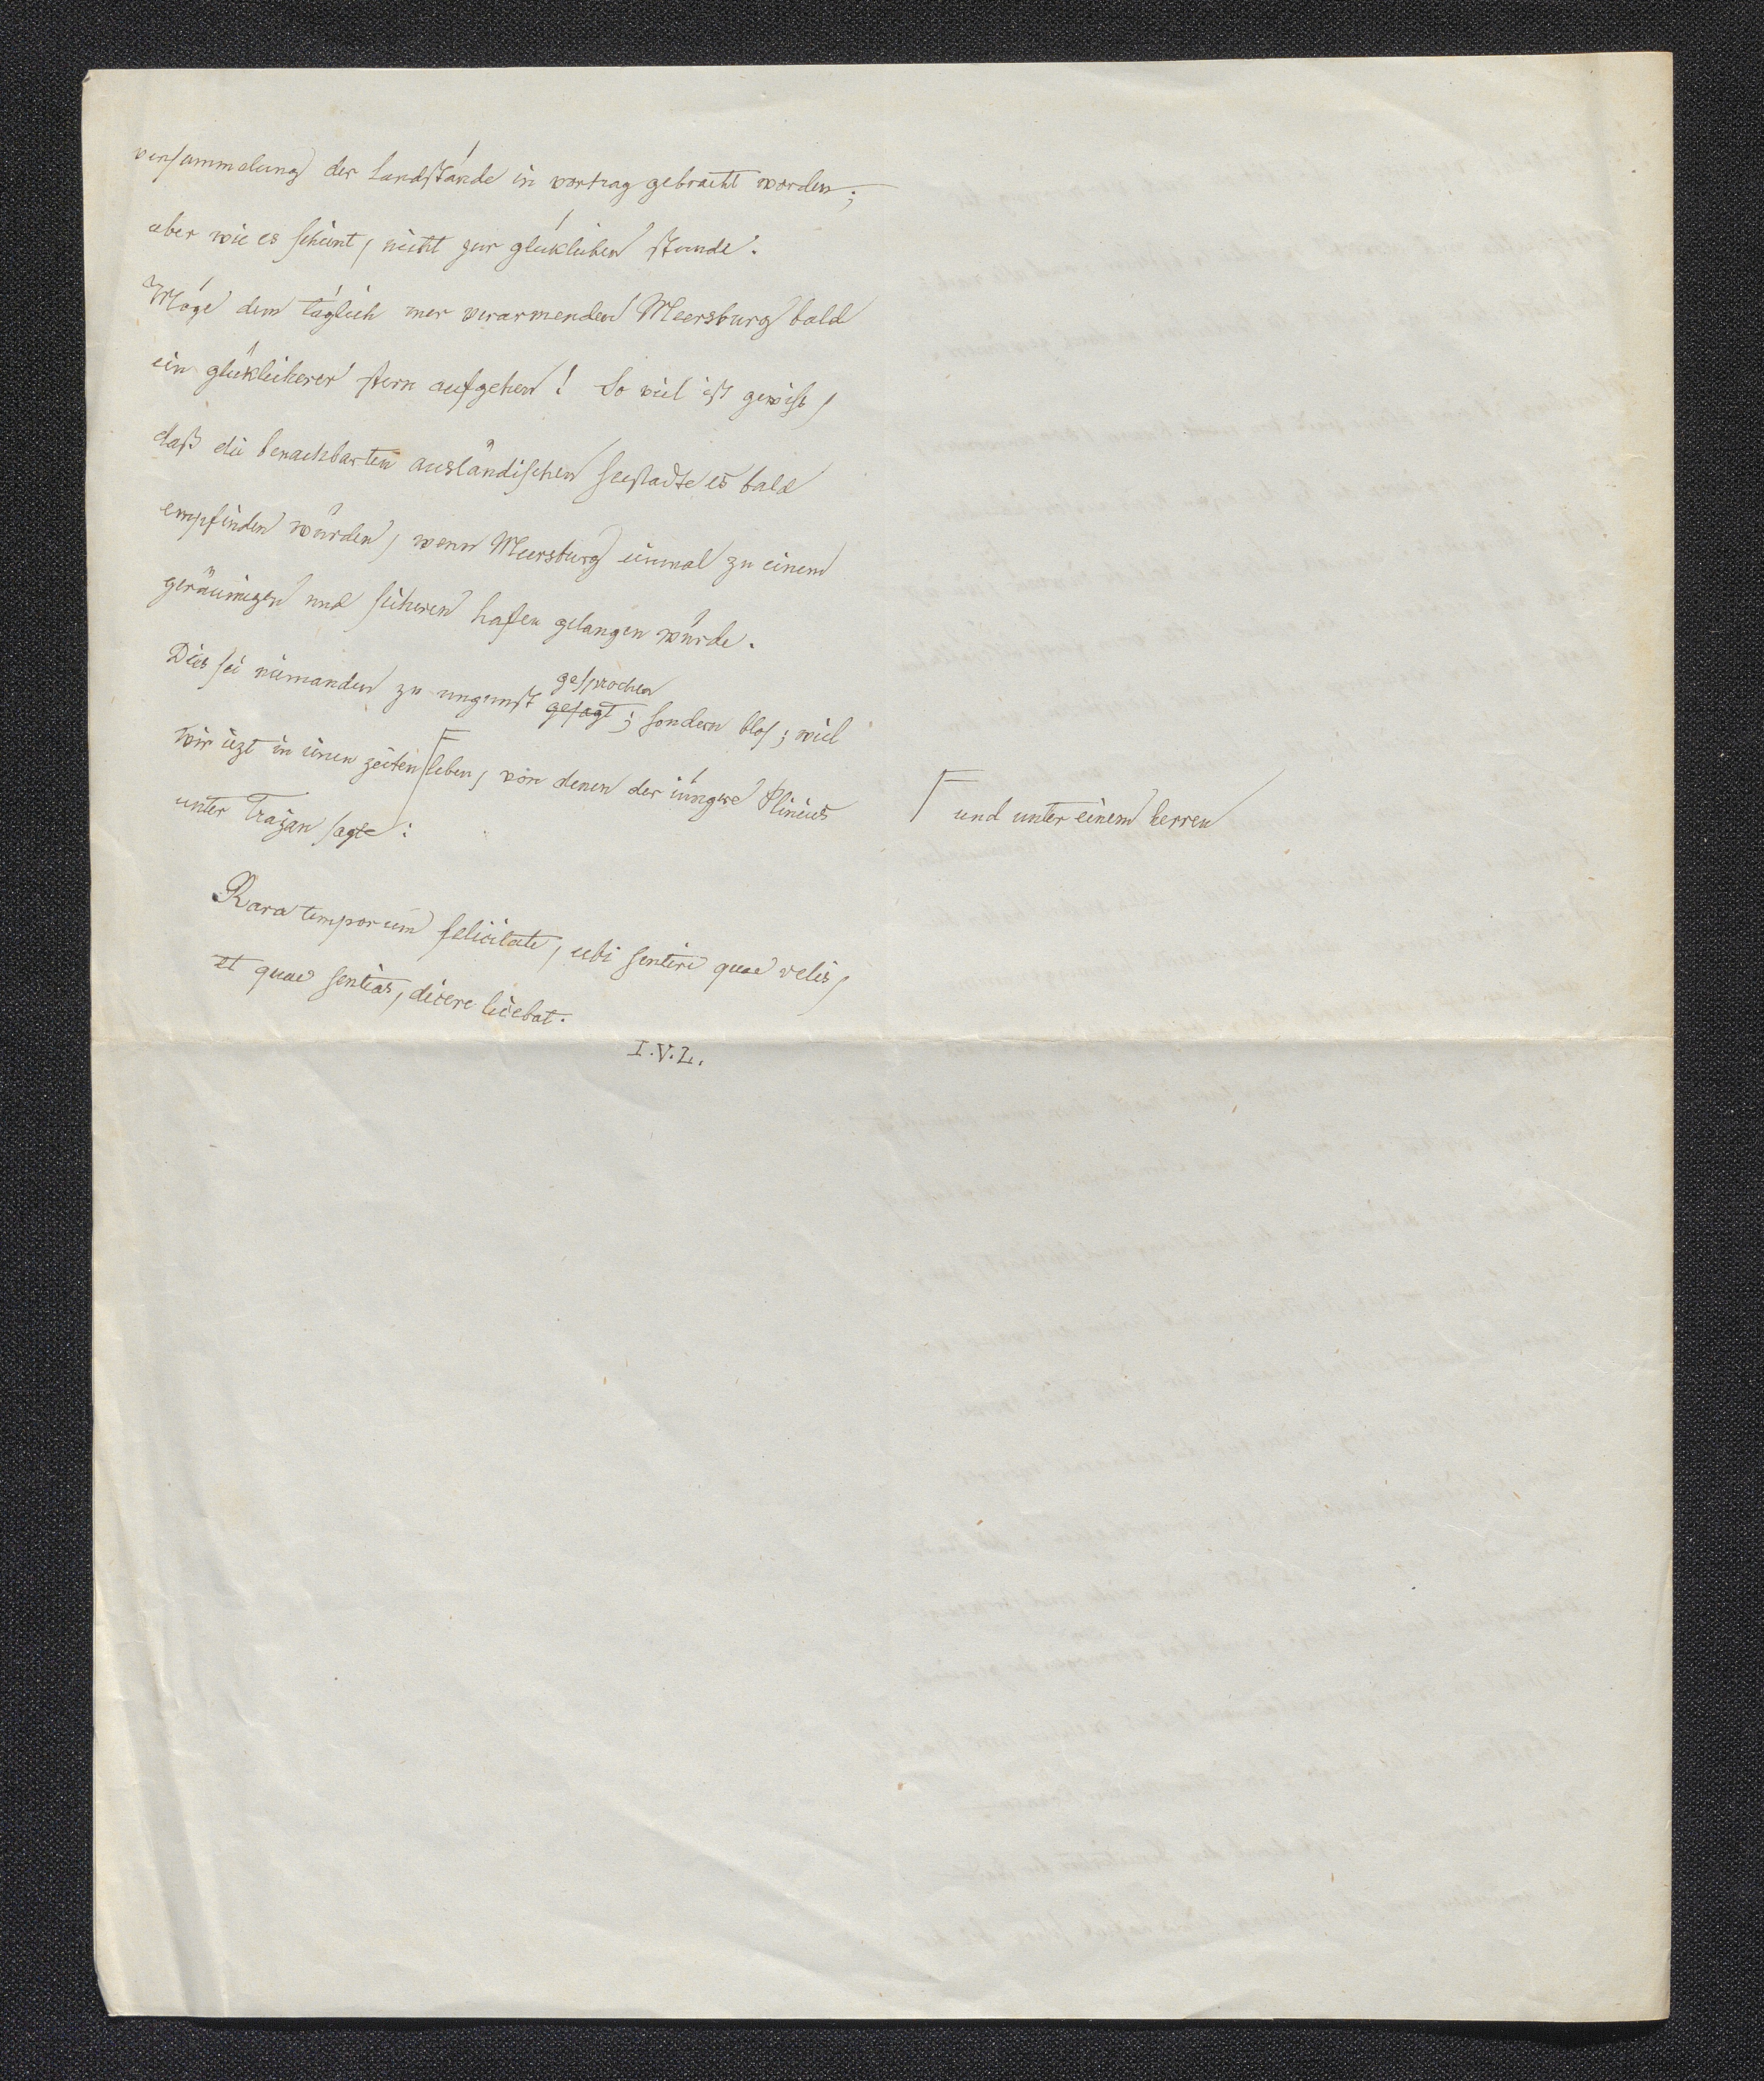 versammelung der landstände in vortrag gebracht worden;
aber wie es scheint, nicht zur glüklichen stunde.
Möge dem täglich mer verarmenden Meersburg bald
ein glüklicherer stern aufgehen! So viel ist gewiß,
daß die benachbarten ausländischen seestädte es bald
empfinden würden, wenn Meersburg einmal zu einem
geräumigen und sicheren hafen gelangen würde.
Dies sei niemanden zu ungunst gesagt gesprochen; sondern blos; weil
wir iezt in einen zeiten leben, von denen der iüngere Plinius
und unter einem herren
unter Trajan sagte:
Rara temporum felicitate, ubi sentire quae velis,
et quae sentias, dicere licebat.
I.V.L.